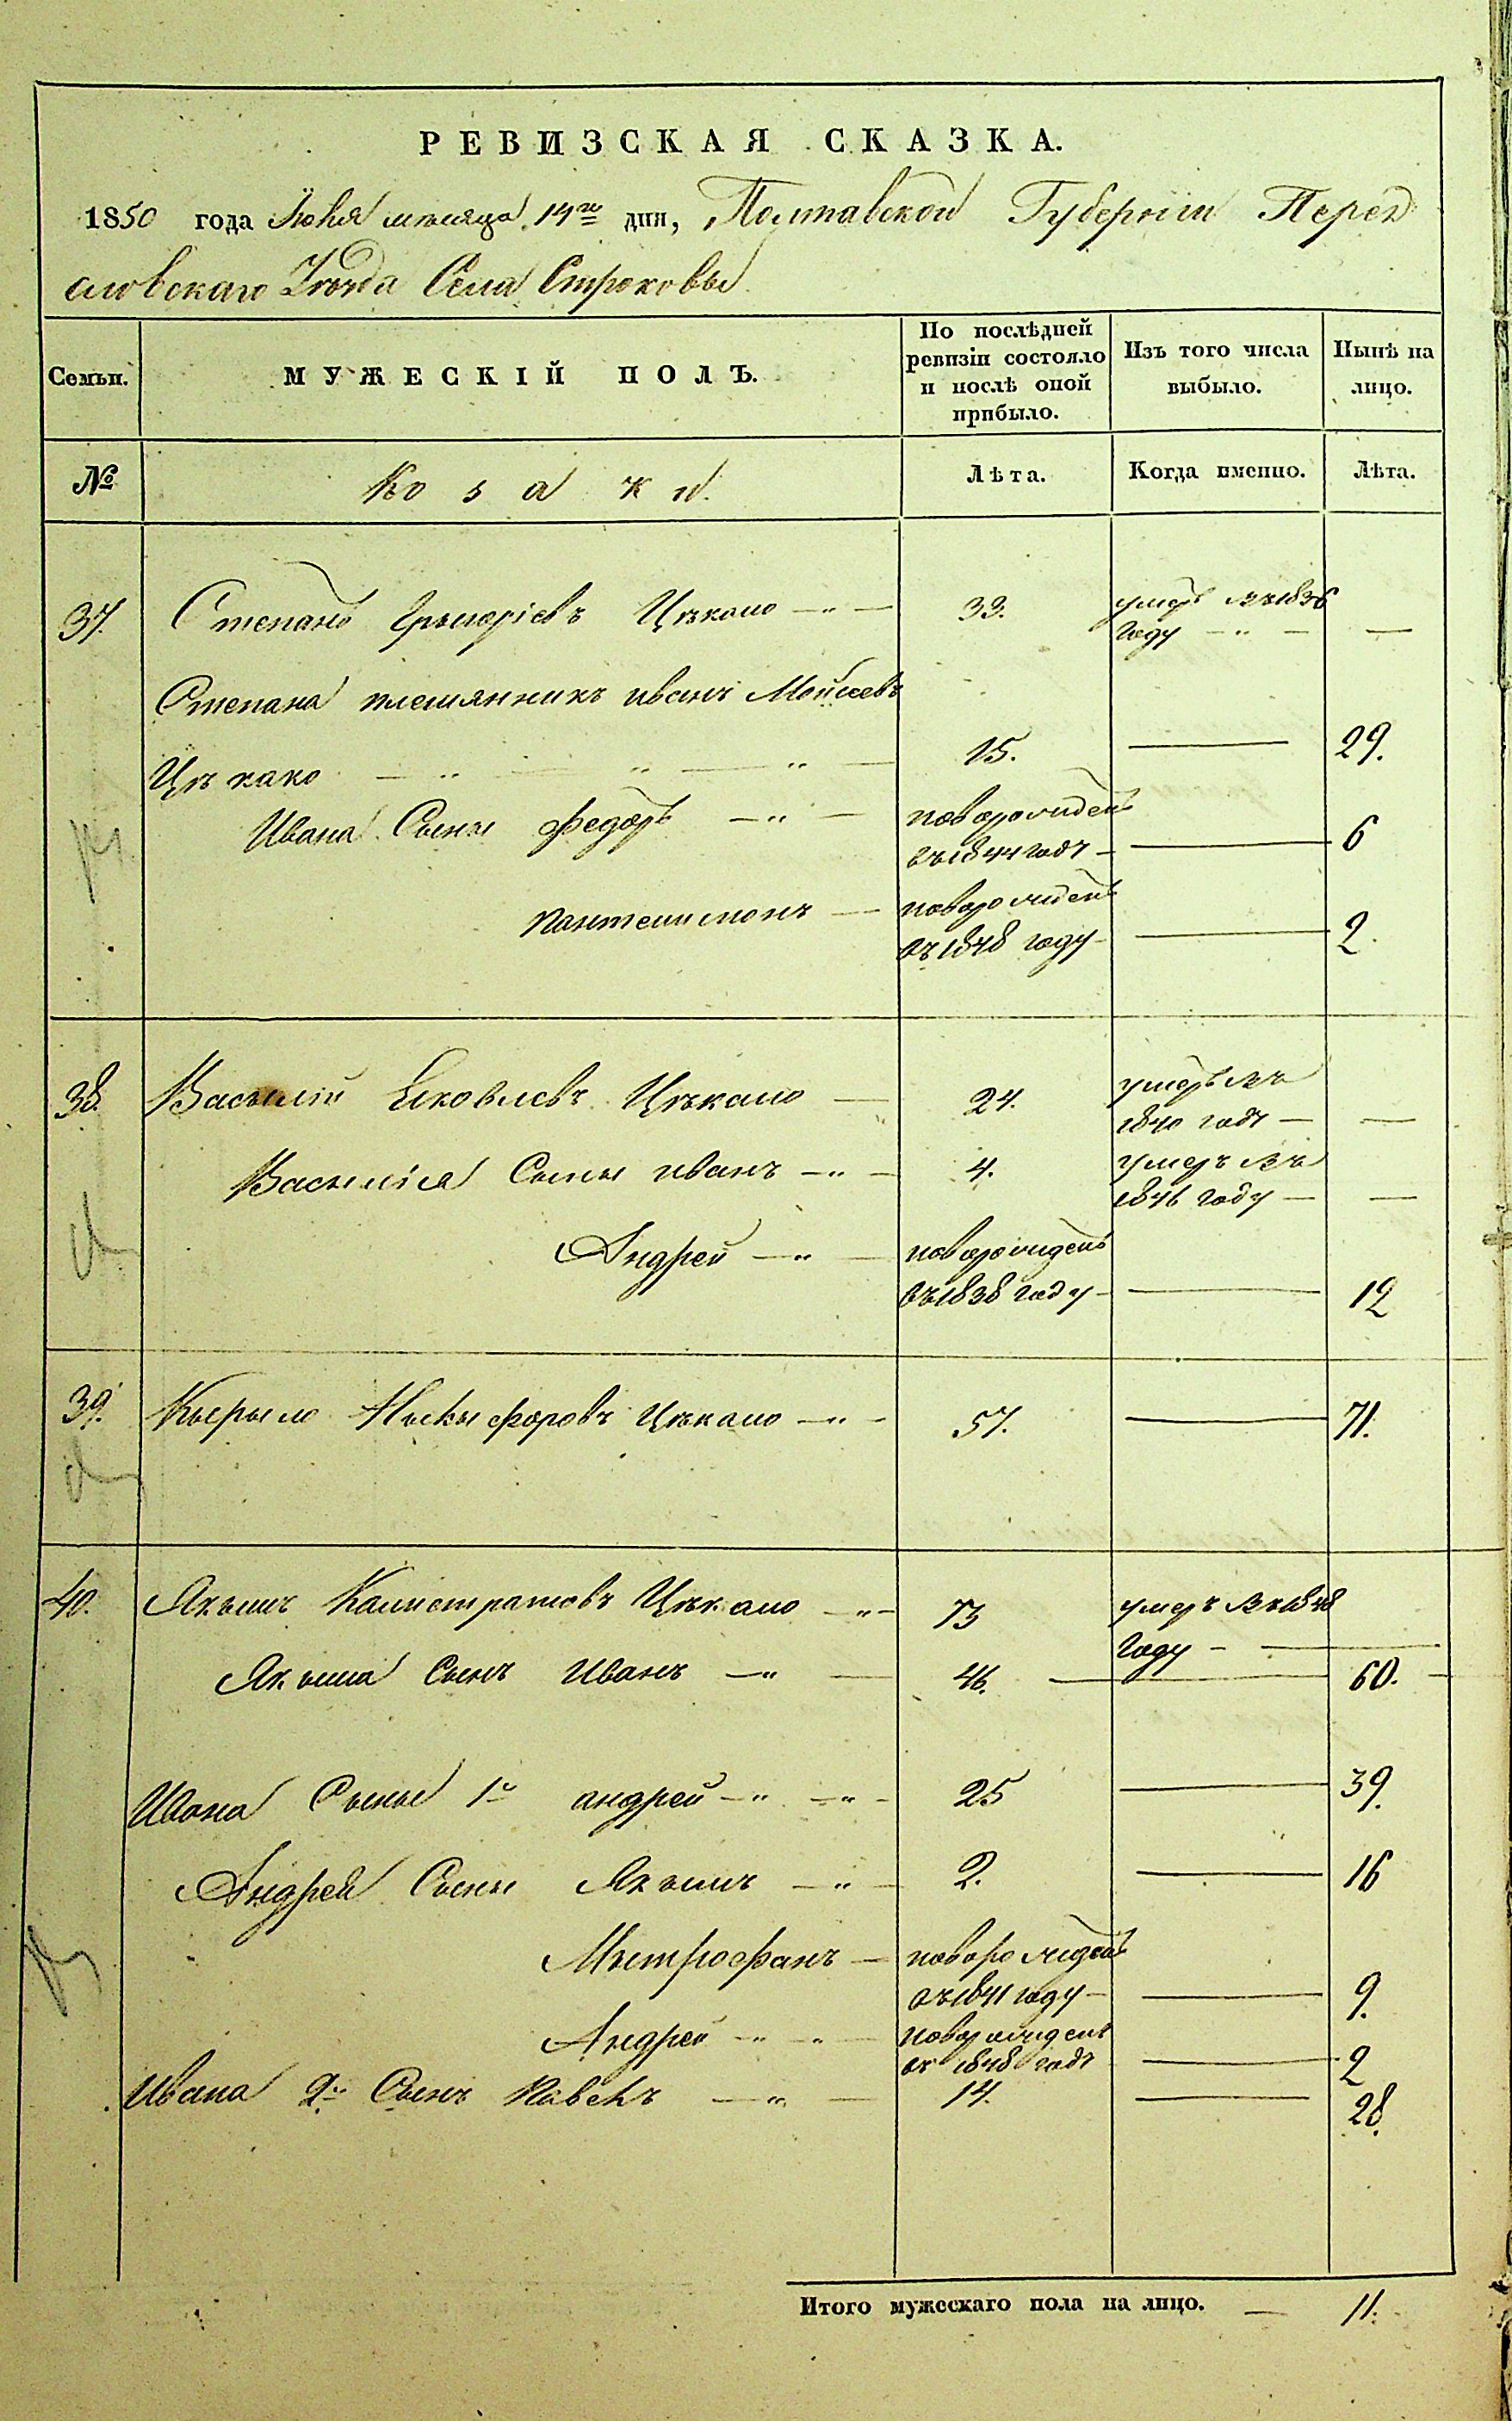 РЕВИЗСКАЯ СКАЗКА.
1850 года Июня месяца 14го дня, Полтавской Губернии Перея
словскаго Уезда Села Строковы
Семьи. МУЖЕСКІЙ ПОЛЪ. По послѣдней ревизіи состояло и послѣ оной прибыло. Изъ того числа выбыло. Нынѣ на лицо.
№ Козаки. Лѣта. Когда именно. Лѣта.
37. Степанъ Грыгоріевъ Цѣкало 33. умеръ въ 1836 —
году
Степана племянникъ иванъ Мойсеевъ
Цѣкало 15. — 29.
Ивана Сыны Федоръ новорожденъ
въ 1844 годъ — 6
Пантелимонъ новорожденъ
въ 1848 году — 2.
38. Васылій Яковлевъ Цѣкало 24. умеръ въ
1840 годъ —
Васыліа Сыны иванъ 4. умеръ въ
1846 году —
Андрей новорожденъ
въ 1838 году — 12
39. Кырыло Ныкыфоровъ Цѣкало 57. — 71.
40. Якымъ Калистратовъ Цѣкало 73 умеръ въ 1848
году —
Якыма Сынъ Иванъ 46. — 60.
Ивана Сыны 1й андрей 25 — 39.
Андрея Сыны Якымъ 2. — 16
Мытрофанъ новорожденъ
въ 1841 году — 9.
Андрей новорожденъ
въ 1848 годъ — 2
Ивана 2й Сынъ Павелъ 14. — 28.
Итого мужескаго пола на лицо. — 11.